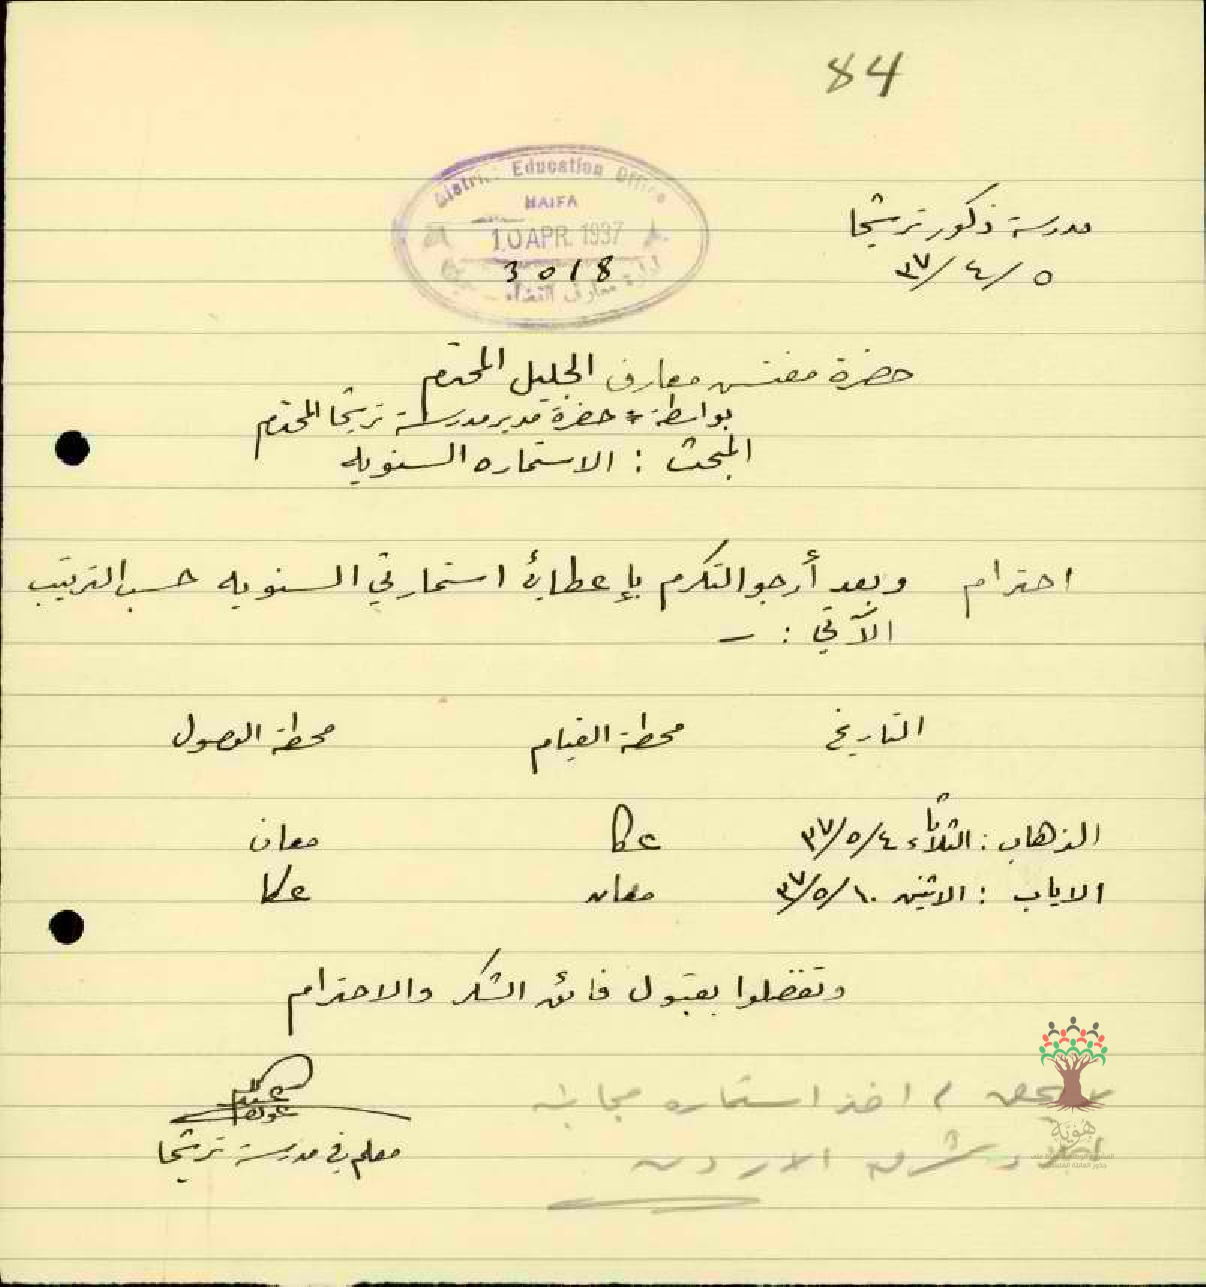 84
District Education Office
HAIFA
10 APR. 1937
3018
إدارة معارف القضاء
مدرسة ذكور ترشيحا
٥/٤/٣٧
حضرة مفتش معارف الجليل المحترم
بواسطة حضرة مدير مدرسة ترشيحا المحترم
المبحث : الاستماره السنويه
احترام وبعد أرجو التكرم بإعطائي استمارتي السنويه حسب الترتيب
الآتي : -
التاريخ محطة القيام محطة الوصول
الذهاب : الثلاثاء ٣٧/٥/٤ عكا معان
الاياب : الاثنين ٣٧/٥/١٠ معان عكا
وتفضلوا بقبول فائق الشكر والاحترام
معلم في مدرسة ترشيحا
اخذ استماره مجانيه
شرق الاردن
هوية